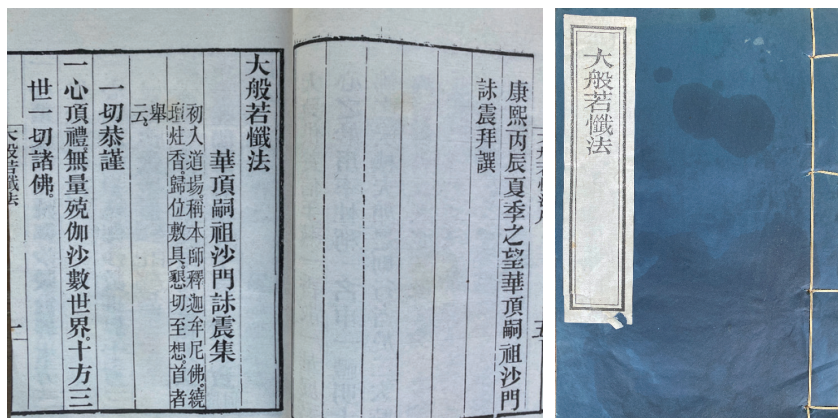 大般若懺法
康熙丙辰夏季之望華頂嗣祖沙門
誅震拜譔
大般若懺法
華頂嗣祖沙門誅震集
初入道場稱本師釋迦牟尼佛。繞
壇炷香。歸位敷具。懇切至想。首者
舉
云。
一切恭謹
一心頂禮。無量殑伽沙數世界。十方三
世一切諸佛。
大般若懺法
一